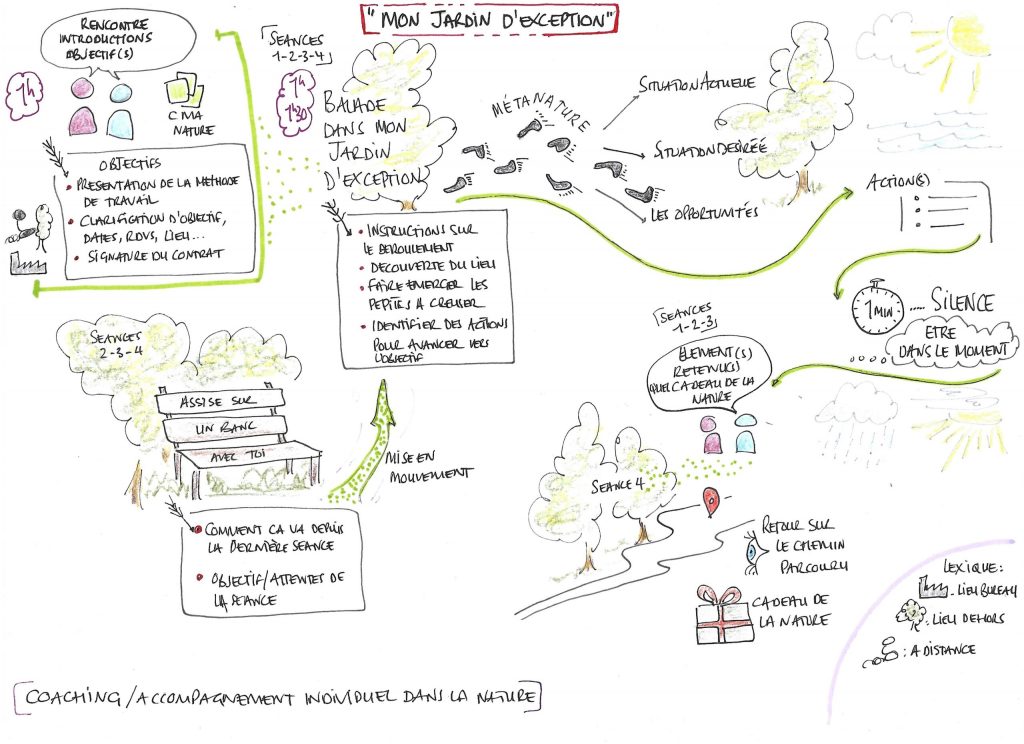 "MON JARDIN D'EXCEPTION"
RENCONTRE
INTRODUCTIONS
OBJECTIF(S)
1H
CMA
NATURE
OBJECTIFS
• PRESENTATION DE LA METHODE
DE TRAVAIL
• CLARIFICATION D'OBJECTIF,
DATES, RDVS, LIEU...
• SIGNATURE DU CONTRAT
SEANCES
1-2-3-4
1H
1H30
BALADE
DANS MON
JARDIN
D'EXCEPTION
• INSTRUCTIONS SUR
LE DEROULEMENT
• DECOUVERTE DU LIEU
• FAIRE EMERGER LES
PEPITES A CREUSER
• IDENTIFIER DES ACTIONS
POUR AVANCER VERS
L'OBJECTIF
MÉTANATURE
SITUATION ACTUELLE
SITUATION DESIRÉÉ
LES OPPORTUNITÉS
ACTION(S)
1 MIN
..... SILENCE
ETRE
DANS LE MOMENT
SEANCES
1-2-3
ÉLEMENT(S)
RETENU(S)
QUEL CADEAU DE LA
NATURE
SEANCES
2-3-4
ASSISE SUR
UN BANC
AVEC TOI
MISE EN
MOUVEMENT
• COMMENT CA VA DEPUIS
LA DERNIÈRE SEANCE
• OBJECTIF/ATTENTES DE
LA SEANCE
SEANCE 4
RETOUR SUR
LE CHEMIN
PARCOURU
CADEAU DE
LA NATURE
LEXIQUE:
- LIEU BUREAU
: LIEU DEHORS
: A DISTANCE
[COACHING/ACCOMPAGNEMENT INDIVIDUEL DANS LA NATURE]